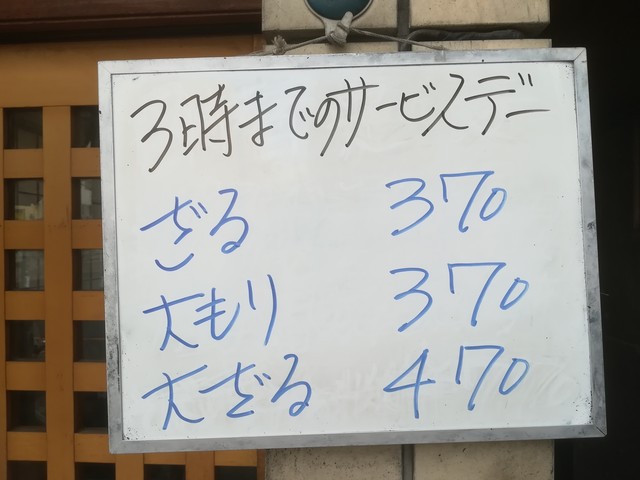 3時までのサービスデー
ざる 370
大もり 370
大ざる 470